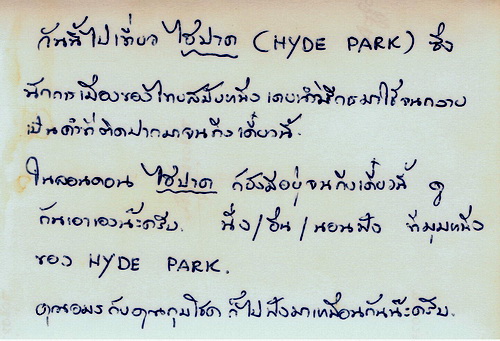 วันนี้ไปเที่ยว ไฮ้ปาด (HYDE PARK) ซึ่ง
นักการเมืองของไทยสมัยหนึ่ง เคยนำมาใช้จนกลาย
เป็นคำที่ติดปากมาจนถึงเดี๋ยวนี้.
ในลอนดอน ไฮ้ปาด ก็ยังมีอยู่จนถึงเดี๋ยวนี้ ดู
กันเอาเองน๊ะครับ. นั่ง/ยืน/นอนฟัง ที่มุมหนึ่ง
ของ HYDE PARK.
คุณอมรกับคุณ ก็ไปฟังมาเหมือนกันน๊ะครับ.